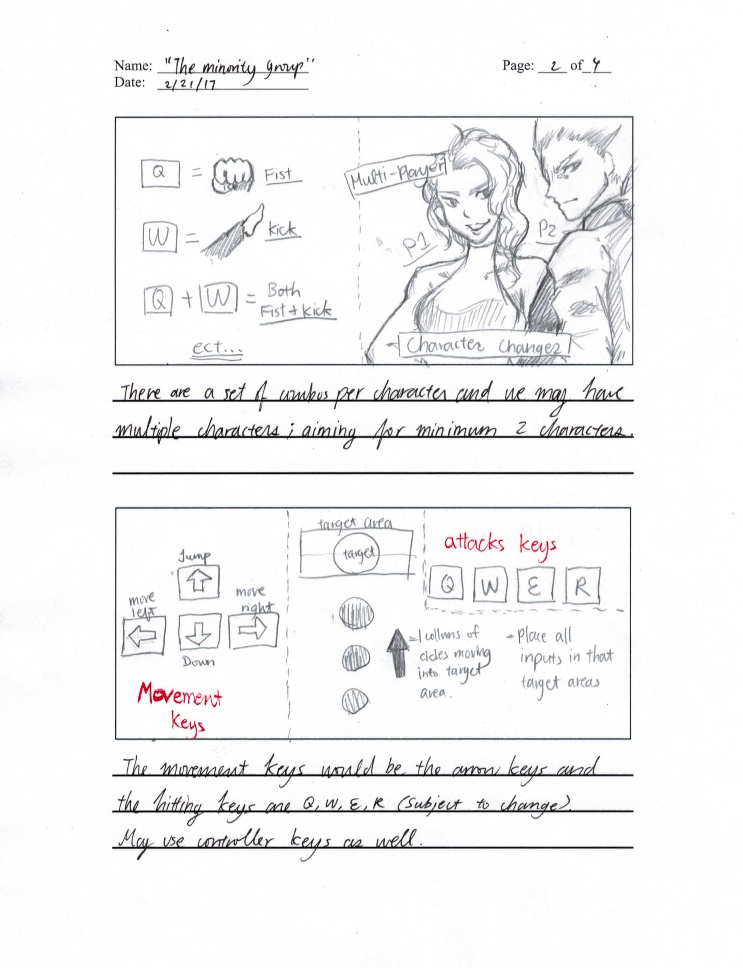 Name: "The minority Group"
Page: 2 of 4
Date: 2/21/17
Q = Fist
W = Kick
Q + W = Both
Fist + Kick
ect...
Multi-Player
P1
P2
Character Changes
There are a set of combos per character and we may have
multiple characters; aiming for minimum 2 characters.
Jump
move
left
move
right
Down
Movement
Keys
target area
target
=1 collums of
cicles moving
into target
area.
attacks keys
Q W E R
- Place all
inputs in that
target areas
The movement keys would be the arrow keys and
the hitting keys are Q, W, E, R (Subject to change).
May use controller keys as well.